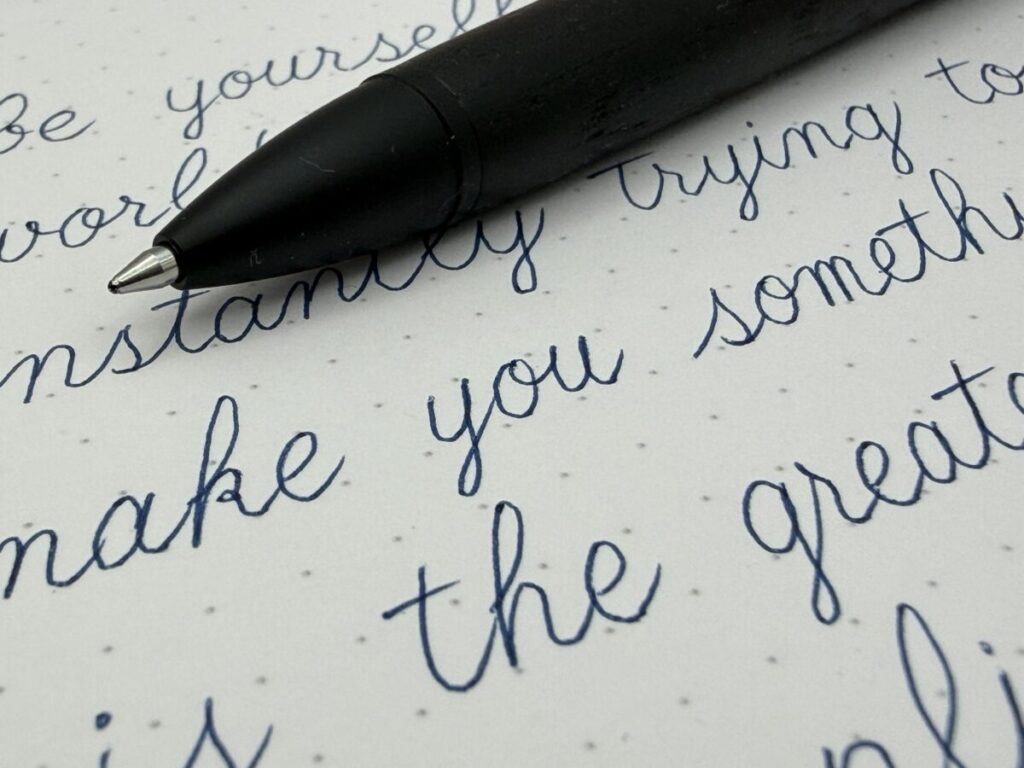 Be yourself
worl
nstantly trying to
make you someth
the great
is pli